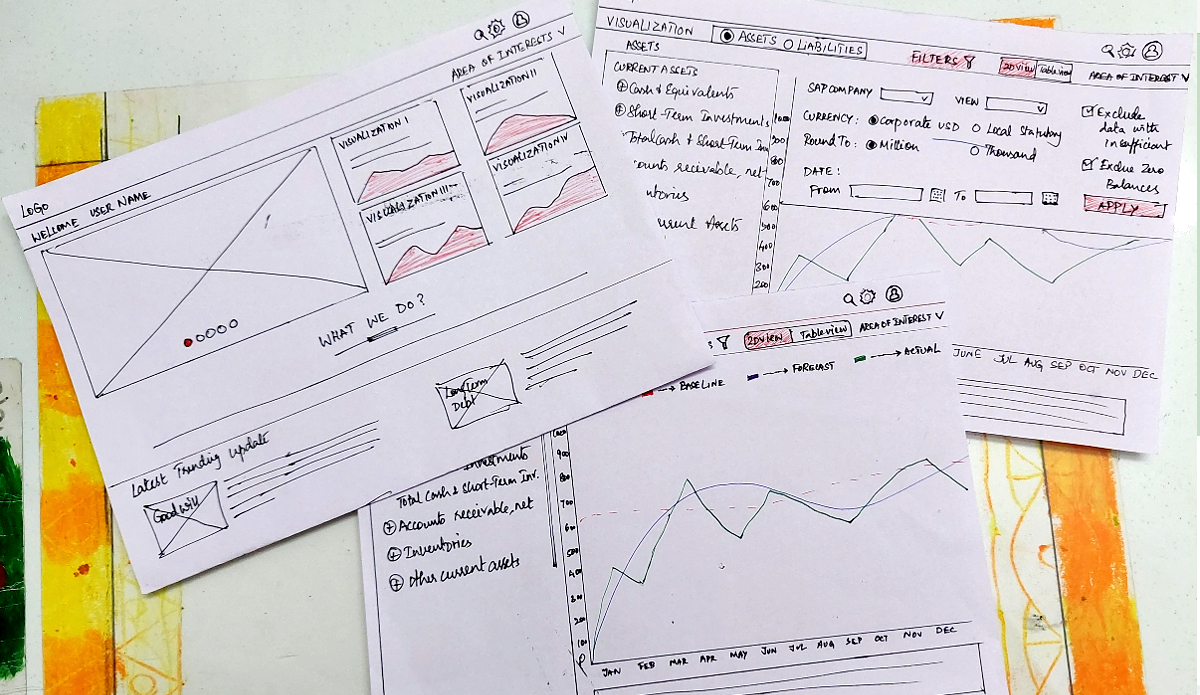 LOGO
WELCOME USER NAME
AREA OF INTERESTS V
VISUALIZATION I
VISUALIZATION II
VISUALIZATION III
VISUALIZATION IV
WHAT WE DO?
Long Term
Debt
Latest Trending update
Good Will
VISUALIZATION
ASSETS LIABILITIES
FILTERS
2D view Table view
AREA OF INTEREST V
ASSETS
CURRENT ASSETS
Cash & Equivalents
Short-Term Investments
Total Cash & Short-Term Inv
ounts receivable, net
ntories
urrent Assets
SAP COMPANY
VIEW
CURRENCY: Corporate USD Local Statutory
Round To: Million Thousand
DATE:
From To
Exclude
data with
insufficient
Exclue Zero
Balances
APPLY
1000
900
800
700
600
500
400
300
200
JUNE JUL AUG SEP OCT NOV DEC
S
2D view Table view
AREA OF INTEREST V
BASELINE
FORECAST
ACTUAL
Investments
Total Cash & Short-Term Inv.
Accounts receivable, net
Inventories
Other current assets
1000
900
800
700
600
500
400
300
200
100
0
JAN FEB MAR APR MAY JUN JUL AUG SEP OCT NOV DEC